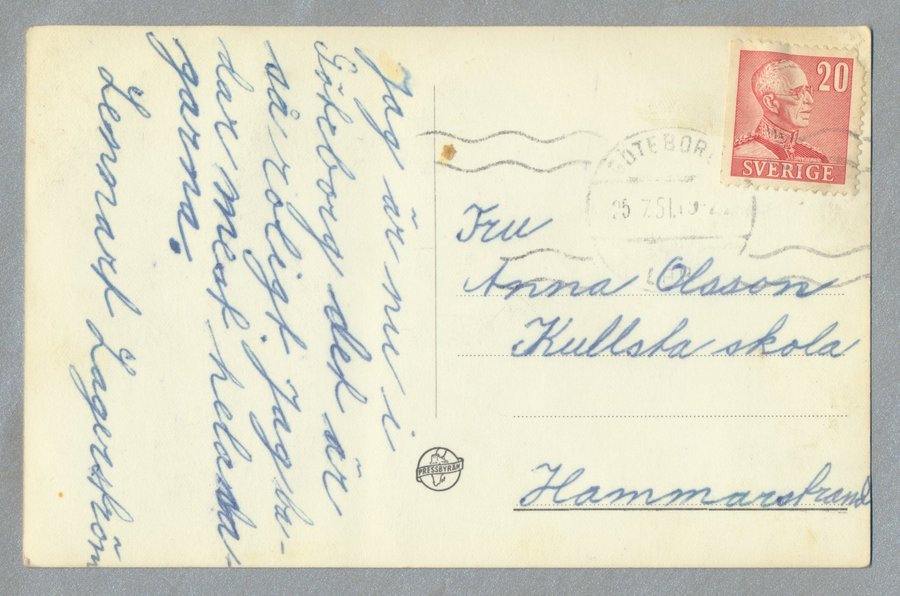 Jag är nu i
Göteborg det är
så roligt Jag ba-
dar mest hela da-
garna.
Lennart Lagerström
20
SVERIGE
GÖTEBORG
25 7.51
Fru
Anna Olsson
Kullsta skola
Hammarstrand
PRESSBYRÅN